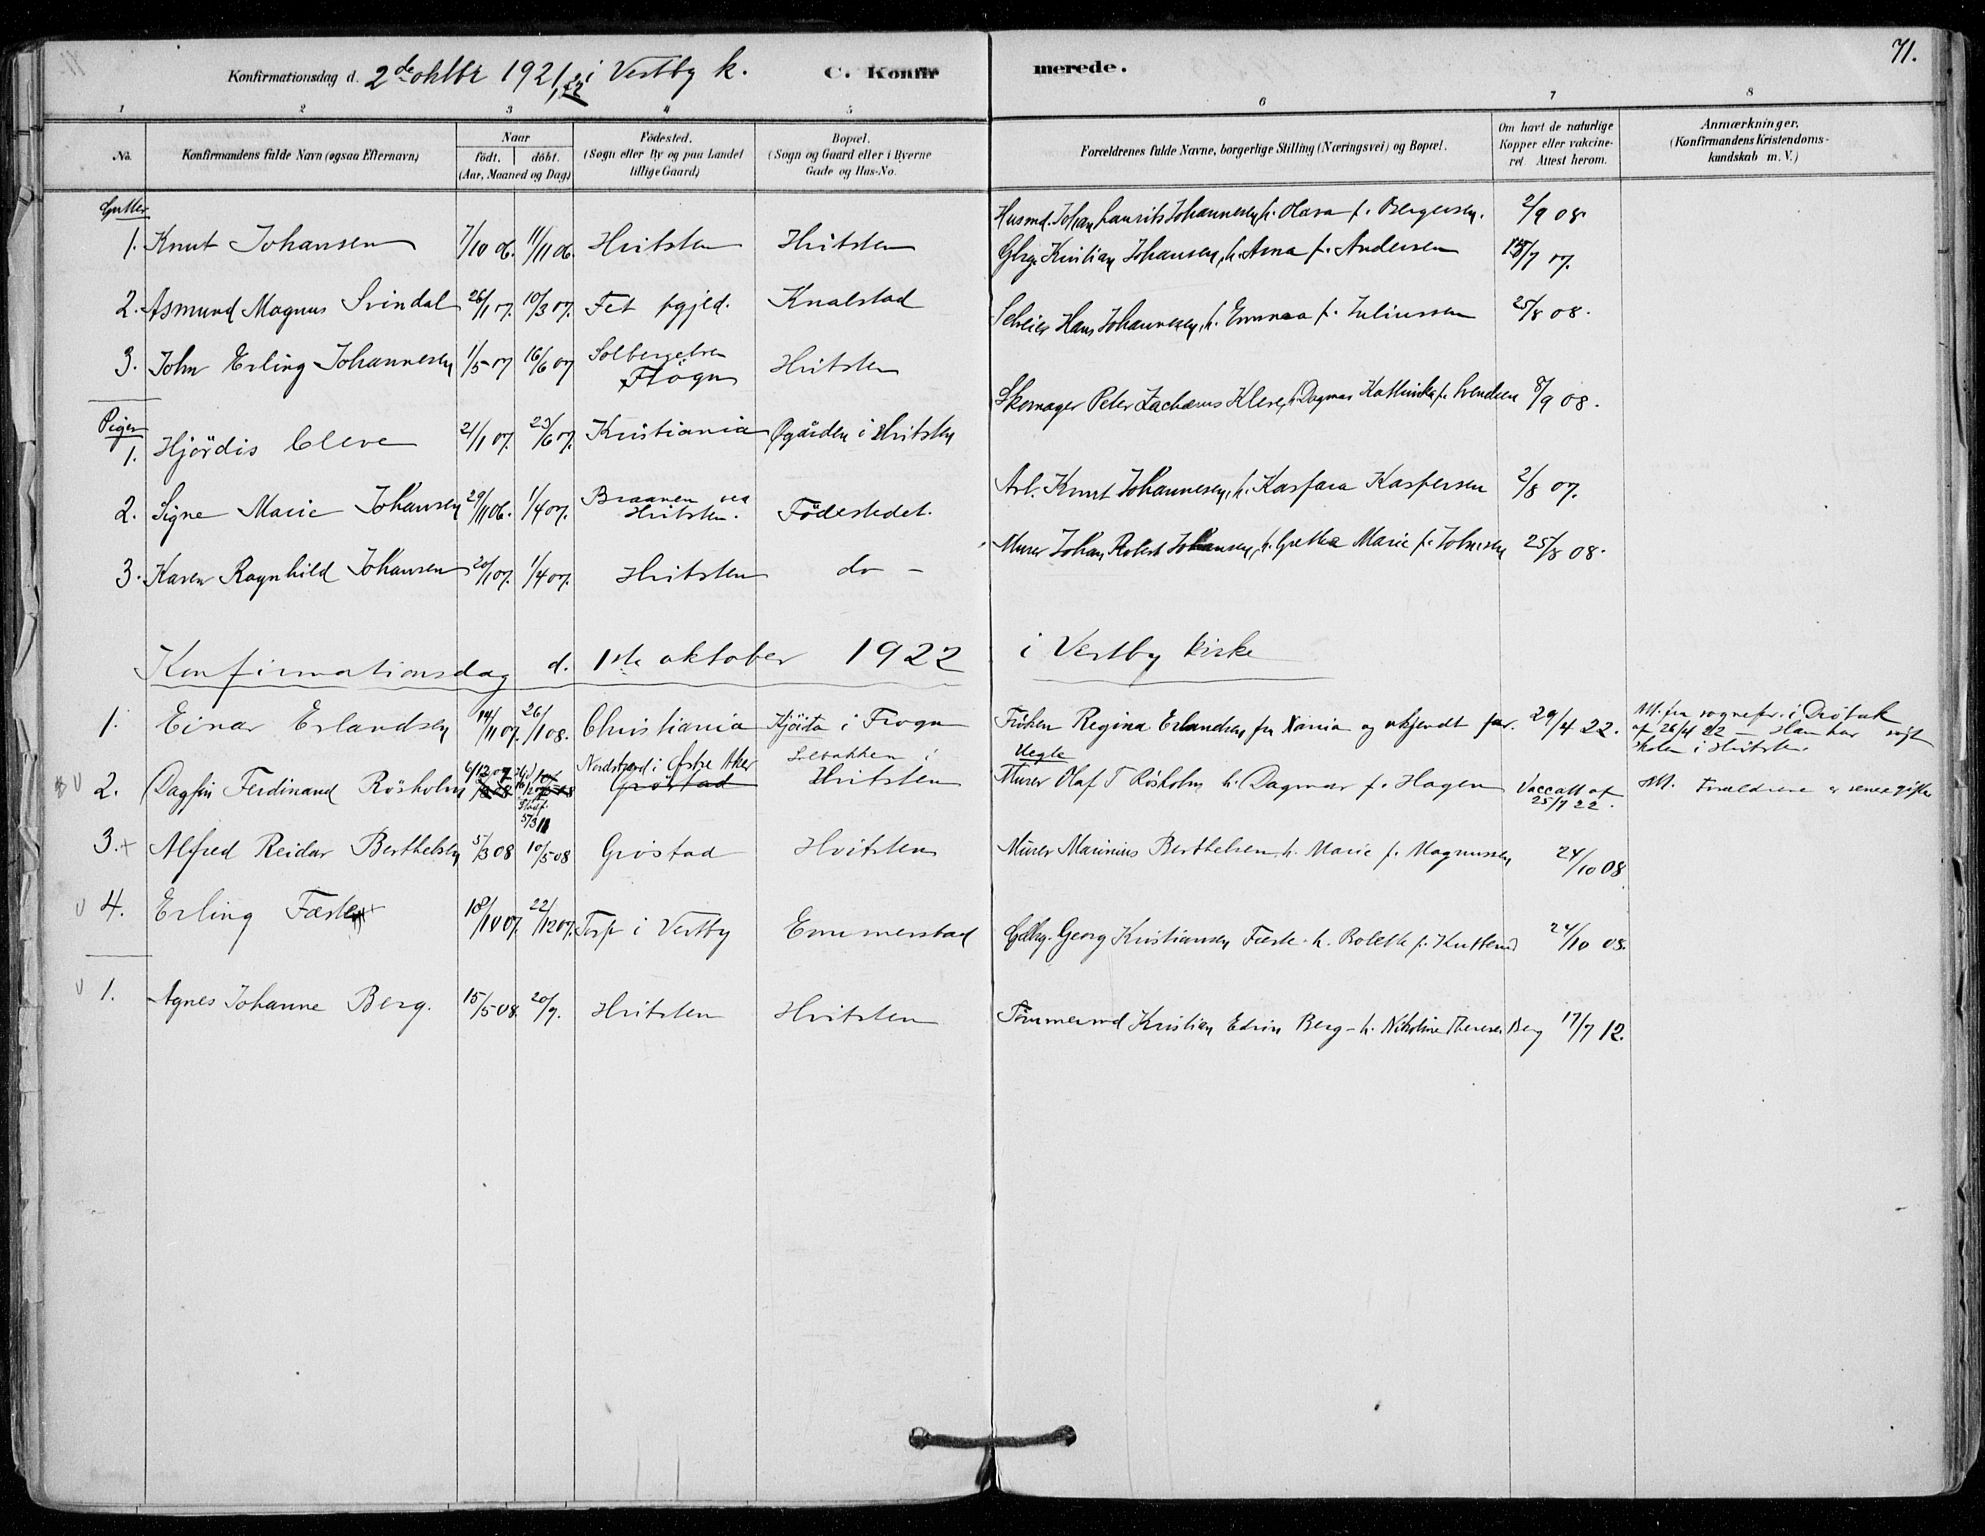 71.
Konfirmationsdag d. 2de oktbr 1921 i Vestby k. C. Konfirmerede.
1 2 3 4 5 6 7 8
No. Konfirmandens fulde Navn (ogsaa Efternavn) Naar født. døbt. (Aar, Maaned og Dag) Fødested. (Sogn eller By og paa Landet tillige Gaard) Bopæl. (Sogn og Gaard eller i Byerne Gade og Hus-No. Forældrenes fulde Navne, borgerlige Stilling (Næringsvei) og Bopæl. Om havt de naturlige Kopper eller vakcineret. Attest herom. Anmærkninger. (Konfirmandens Kristendomskundskab m. V.)
Gutter
1. Knut Johansen 7/10 06. 11/11 06. Hvitsten Hvitsten Husmd. Johan Laurits Johannesen, h. Olava f. Bergersen. 2/9 08.
2. Asmund Magnus Svindal 26/1 07. 10/3 07. Fet pgjld. Knalstad Gbrg. Kristian Johansen, h. Anna f. Andersen 15/7 07.
3. John Erling Johannesen 1/5 07 16/6 07 Solbergelven Frogn Hvitsten Selveier Hans Johannesen, h. Emma f. Juliussen 25/8 08.
Piger
1. Hjørdis Cleve 2/1 07. 23/6 07. Kristiania Øgården i Hvitsten Skomager Peter Zachæus Kleve, h. Dagmar Kathinka f. Svendsen 8/9 08.
2. Signe Marie Johansen 29/11 06. 1/4 07. Braanen ved Hvitsten. Fødestedet. Arb. Knut Johannesen, h. Kaspara Kaspersen 2/8 07.
3. Karen Ragnhild Johansen 20/1 07. 1/4 07. Hvitsten do - Murer Johan Robert Johansen, h. Grethe Marie f. Johnsen 25/8 08.
Konfirmationsdag d. 1ste oktober 1922 i Vestby kirke
1. Einar Erlandsen 14/11 07. 26/1 08. Christiania i Frogn Frøken Regina Erlandsen fra Xania og ukjendt far. 29/4 22. Att. fra sognepr. i Drøbak af 26/4 22 - Han har søgt skolen i Hvitsten
2. Dagfin Ferdinand Røsholm 6/12 07 Nordstrand i Østre Aker Grøstad Solbakken i Hvitsten Murer Olaf T Røsholm h. Dagmar f. Hagen Vaccatt af 25/7 22. Att. Forældrene er senere gifte
Uegte
3. Alfred Reidar Berthelsen 5/3 08 10/5 08 Grøstad Hvitsten Murer Marinius Berthelsen, h. Marie f. Magnussen 24/10 08
4. Erling Fæste 18/10 07. 22/12 07. Torp i Vestby Emmerstad Gdbrg. Georg Kristiansen Fæste. h. Bolette f. 24/10 08.
1. Agnes Johanne Berg. 15/5 08. 20/9. Hvitsten Hvitsten Tømmermd Kristian Edvin Berg - h. Nikoline Therese Berg 17/7 12.